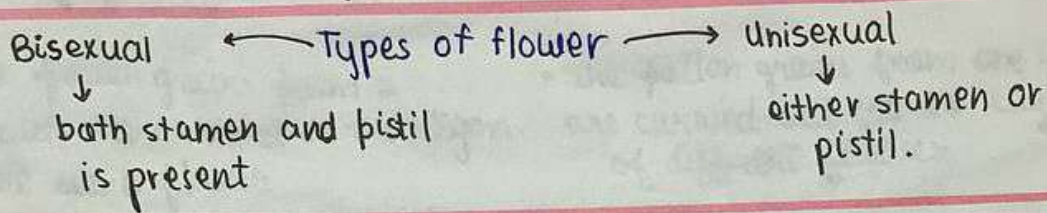 Bisexual ← Types of flower → Unisexual
↓ ↓
both stamen and pistil
is present
either stamen or
pistil.